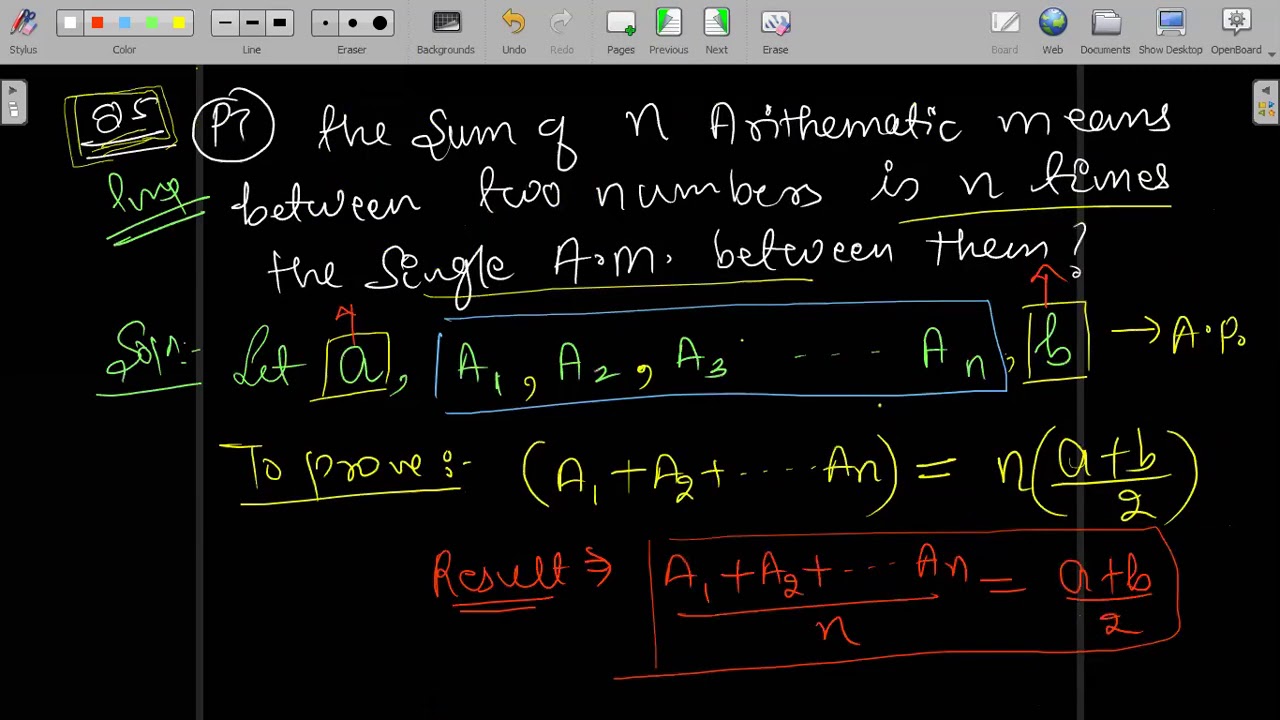 Stylus Color Line Eraser Backgrounds Undo Redo Pages Previous Next Erase Board Web Documents Show Desktop OpenBoard
Q5 PT the Sum of n Arithematic means
Imp between two numbers is n times
the Single A.M. between them?
Soln:- Let a, A1, A2, A3 ---- An, b → A.P.
To prove :- (A1 + A2 + ..... An) = n(a+b/2)
Result ⇒ A1 + A2 + ... An / n = a+b / 2